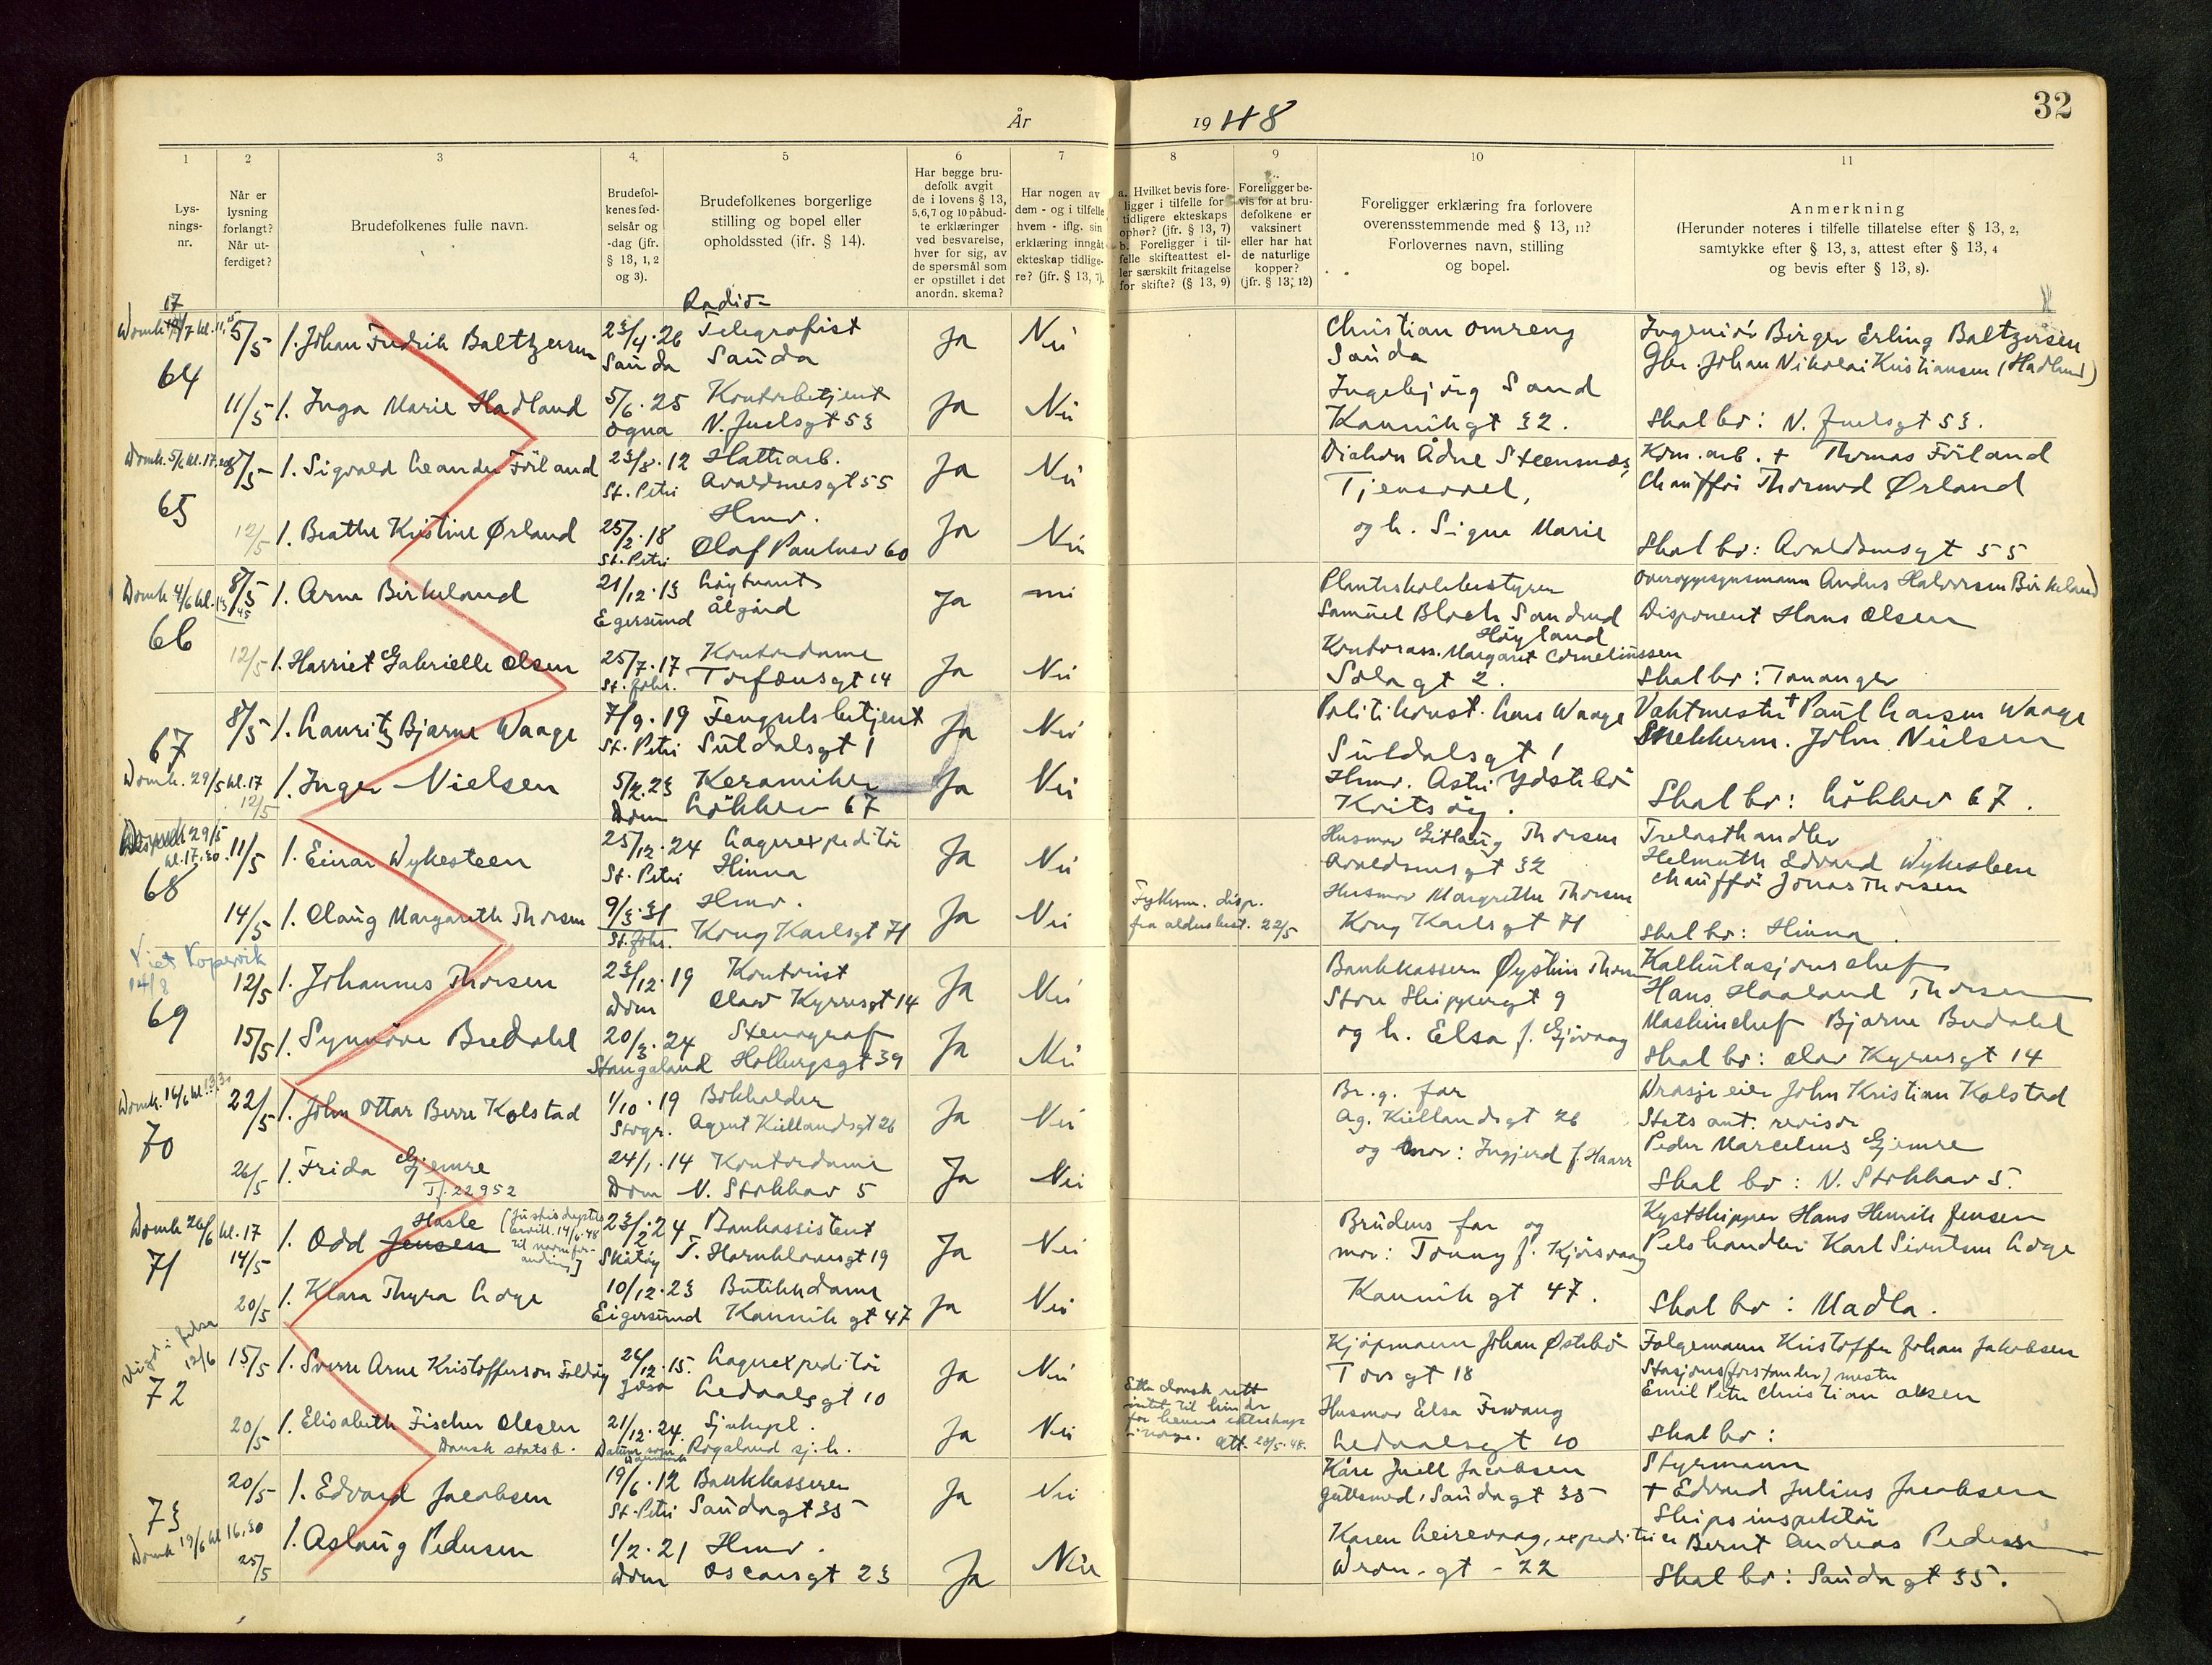 År
1948
32
1
2
3
4
5
6
7
8
9
10
11
Lys-
nings-
nr.
Når er
lysning
forlangt?
Når ut-
ferdiget?
Brudefolkenes fulle navn.
Brudefol-
kenes fød-
selsår og
-dag (jfr.
§ 13, 1, 2
og 3).
Brudefolkenes borgerlige
stilling og bopel eller
opholdssted (jfr. § 14).
Har begge bru-
defolk avgit
de i lovens § 13,
5,6,7 og 10 påbud-
te erklæringer
ved besvarelse,
hver for sig, av
de spørsmål som
er opstillet i det
anordn. skema?
Har nogen av
dem - og i tilfelle
hvem - iflg. sin
erklæring inngåt
ekteskap tidlige-
re? (jfr. § 13, 7).
a. Hvilket bevis fore-
ligger i tilfelle for
tidligere ekteskaps
ophør? (jfr. § 13, 7)
b. Foreligger i til-
felle skifteattest el-
ler særskilt fritagelse
for skifte? (§ 13, 9)
Foreligger be-
vis for at bru-
defolkene er
vaksinert
eller har hat
de naturlige
kopper?
(jfr. § 13, 12)
Foreligger erklæring fra forlovere
overensstemmende med § 13, 11?
Forlovernes navn, stilling
og bopel.
Anmerkning
(Herunder noteres i tilfelle tillatelse efter § 13, 2,
samtykke efter § 13, 3, attest efter § 13, 4
og bevis efter § 13, 8).
17
Domk. /7 kl. 11,15
64
5/5 1. Johan Fredrik Baltzersen 23/4.26 Radio-
Telegrafist Ja Nei
Sauda Sauda
Christian Omreng
Sauda
Ingeniør Birger Erling Baltzersen
Gbr. Johan Nikolai Kristiansen (Hadland)
11/5 1. Inga Marie Hadland 5/6.25 Kontorbetjent Ja Nei
Ogna N. Juelsgt 53
Ingebjørg Sand
Kannikgt 32.
Skal bo: N. Juelsgt 53.
Domk. 5/6 kl. 17,30
65
8/5 1. Sigvald Leander Förland 23/8.12 Hattearb. Ja Nei
St. Petri Avaldsnesgt 55
Diakon Ådne Steensnæs,
Tjensvoll,
Kom. arb. + Thomas Förland
Chauffør Thormod Ørland
12/5 1. Beathe Kristine Ørland 25/2.18 Hmv. Ja Nei
St. Petri Olaf Paulusv 60
og h. Signe Marie
Skal bo: Avaldsnesgt 55
Domk 4/6 kl. 13,45
66
8/5 1. Arne Birkeland 21/12.13 Løytnant Ja nei
Egersund Ålgård
Planteskolebestyrer
Samuel Bloch Sandved
Høyland
Overoppsynsmann Andres Halvorsen Birkeland
Disponent Hans Olsen
12/5 1. Harriet Gabrielle Olsen 25/7.17 Kontordame Ja Nei
St. Johs. Torfæusgt 14
Kontorass. Margaret Corneliussen
Solagt 2.
Skal bo: Tananger
67
8/5 1. Lauritz Bjarne Waage 7/9.19 Fengselsbetjent Ja Nei
St. Petri Suldalsgt 1
Politikonst. Lars Waage
Suldalsgt 1
Vaktmester + Paul Larsen Waage
Snekkerm. John Nielsen
Domk. 29/5 kl. 17
12/5 1. Inger Nielsen 5/2.23 Keramiker Ja Nei
Dom Løkkev 67
Hmv. Astri Ydstebö
Kvitsøy.
Skal bo: Løkkev 67.
29/5
kl. 17.30
68
11/5 1. Einar Wykesteen 25/12.24 Lagerekspeditör Ja Nei
St. Petri Hinna
Husmor Gitlaug Thorsen
Avaldsnesgt 32
Trelasthandler
Helmuth Edvard Wykesteen
Chauffør Jonas Thorsen
14/5 1. Olaug Margareth Thorsen 9/3.31 Hmv. Ja Nei
St. Johs. Kong Karlsgt 71
Fylkesm. disp.
fra aldersbest. 22/5
Husmor Margrethe Thorsen
Kong Karlsgt 71
Skal bo: Hinna.
Viet Kopervik
14/8
69
12/5 1. Johannes Thorsen 23/12.19 Kontorist Ja Nei
Dom Olav Kyrresgt 14
Bankkasserer Øystein Thorsen
Store Skippergt 9
Kalkulasjonschef
Hans Haaland Thorsen
15/5 1. Synnöve Bredahl 20/3.24 Stenograf Ja Nei
Stangaland Holbergsgt 39
og h. Elsa f. Gjøvaag
Maskinchef Bjarne Bredahl
Skal bo: Olav Kyrresgt 14
Domk. 16/6 kl. 13.30
70
22/5 1. John Ottar Berre Kolstad 1/10.19 Bokholder Ja Nei
Stvgr. Agent Kiellandsgt 26
Br.g. far
Ag. Kiellandsgt 26
Drosjeeier John Kristian Kolstad
Stats aut. revisor
26/5 1. Frida Gjemre 24/1.14 Kontordame Ja Nei
Tf. 22952 Dom N. Stokkav 5
og mor: Ingjerd f. Haarr
Peder Marcelius Gjemre
Skal bo: N. Stokkav 5.
Domk 26/6 kl. 17
71
14/5 1. Odd Jensen Hasle [Justisdeptets
bevill. 14/6-48
til navnefor-
andring] 23/2.24 Bankassistent Ja Nei
Skåtøy T. Hornklovesgt 19
Brudens far og
mor: Tonny f. Kjörsvaag
Kystskipper Hans Henrik Jensen
Pelshandler Karl Sivertsen Loge
20/5 1. Klara Thyra Loge 10/12.23 Butikkdame Ja Nei
Eigersund Kannik gt 47
Kannik gt 47.
Skal bo: Madla.
12/6
72
15/5 1. Sverre Arne Kristofferson Foldøy 26/12.15. Lagerekspeditör Ja Nei
Jelsa Ledaalsgt 10
Kjøpmann Johan Østebö
Torsgt 18
Folgemann Kristoffer Johan Jakobsen
Stasjons(forstander) mester
Emil Peter Christian Olesen
20/5 1. Elisabeth Fischer Olesen 21/12.24. Sykepl. Ja Nei
Dansk statsb. Rogaland sj.h.
Etter dansk rett
intet til hinder
for hennes ekteskap
i Norge. Att. 20/5-48.
Husmor Elsa
Ledaalsgt 10
Skal bo:
20/5
73
1. Edvard Jacobsen 19/6.12 Bankkasserer Ja Nei
St. Petri Saudagt 35
Kåre Juell Jacobsen
gullsmed, Saudagt 35
Styrmann
+ Edvard Julius Jacobsen
Skipsinspektör
Domk 19/6 kl 16,30
25/5 1. Aslaug Pedersen 1/2.21 Hmv. Ja Nei
Dom Oscarsgt 23
Karen Leirevaag, expeditrise
Dron. gt - 22
Bernt Andreas Pedersen
Skal bo: Saudagt 35.